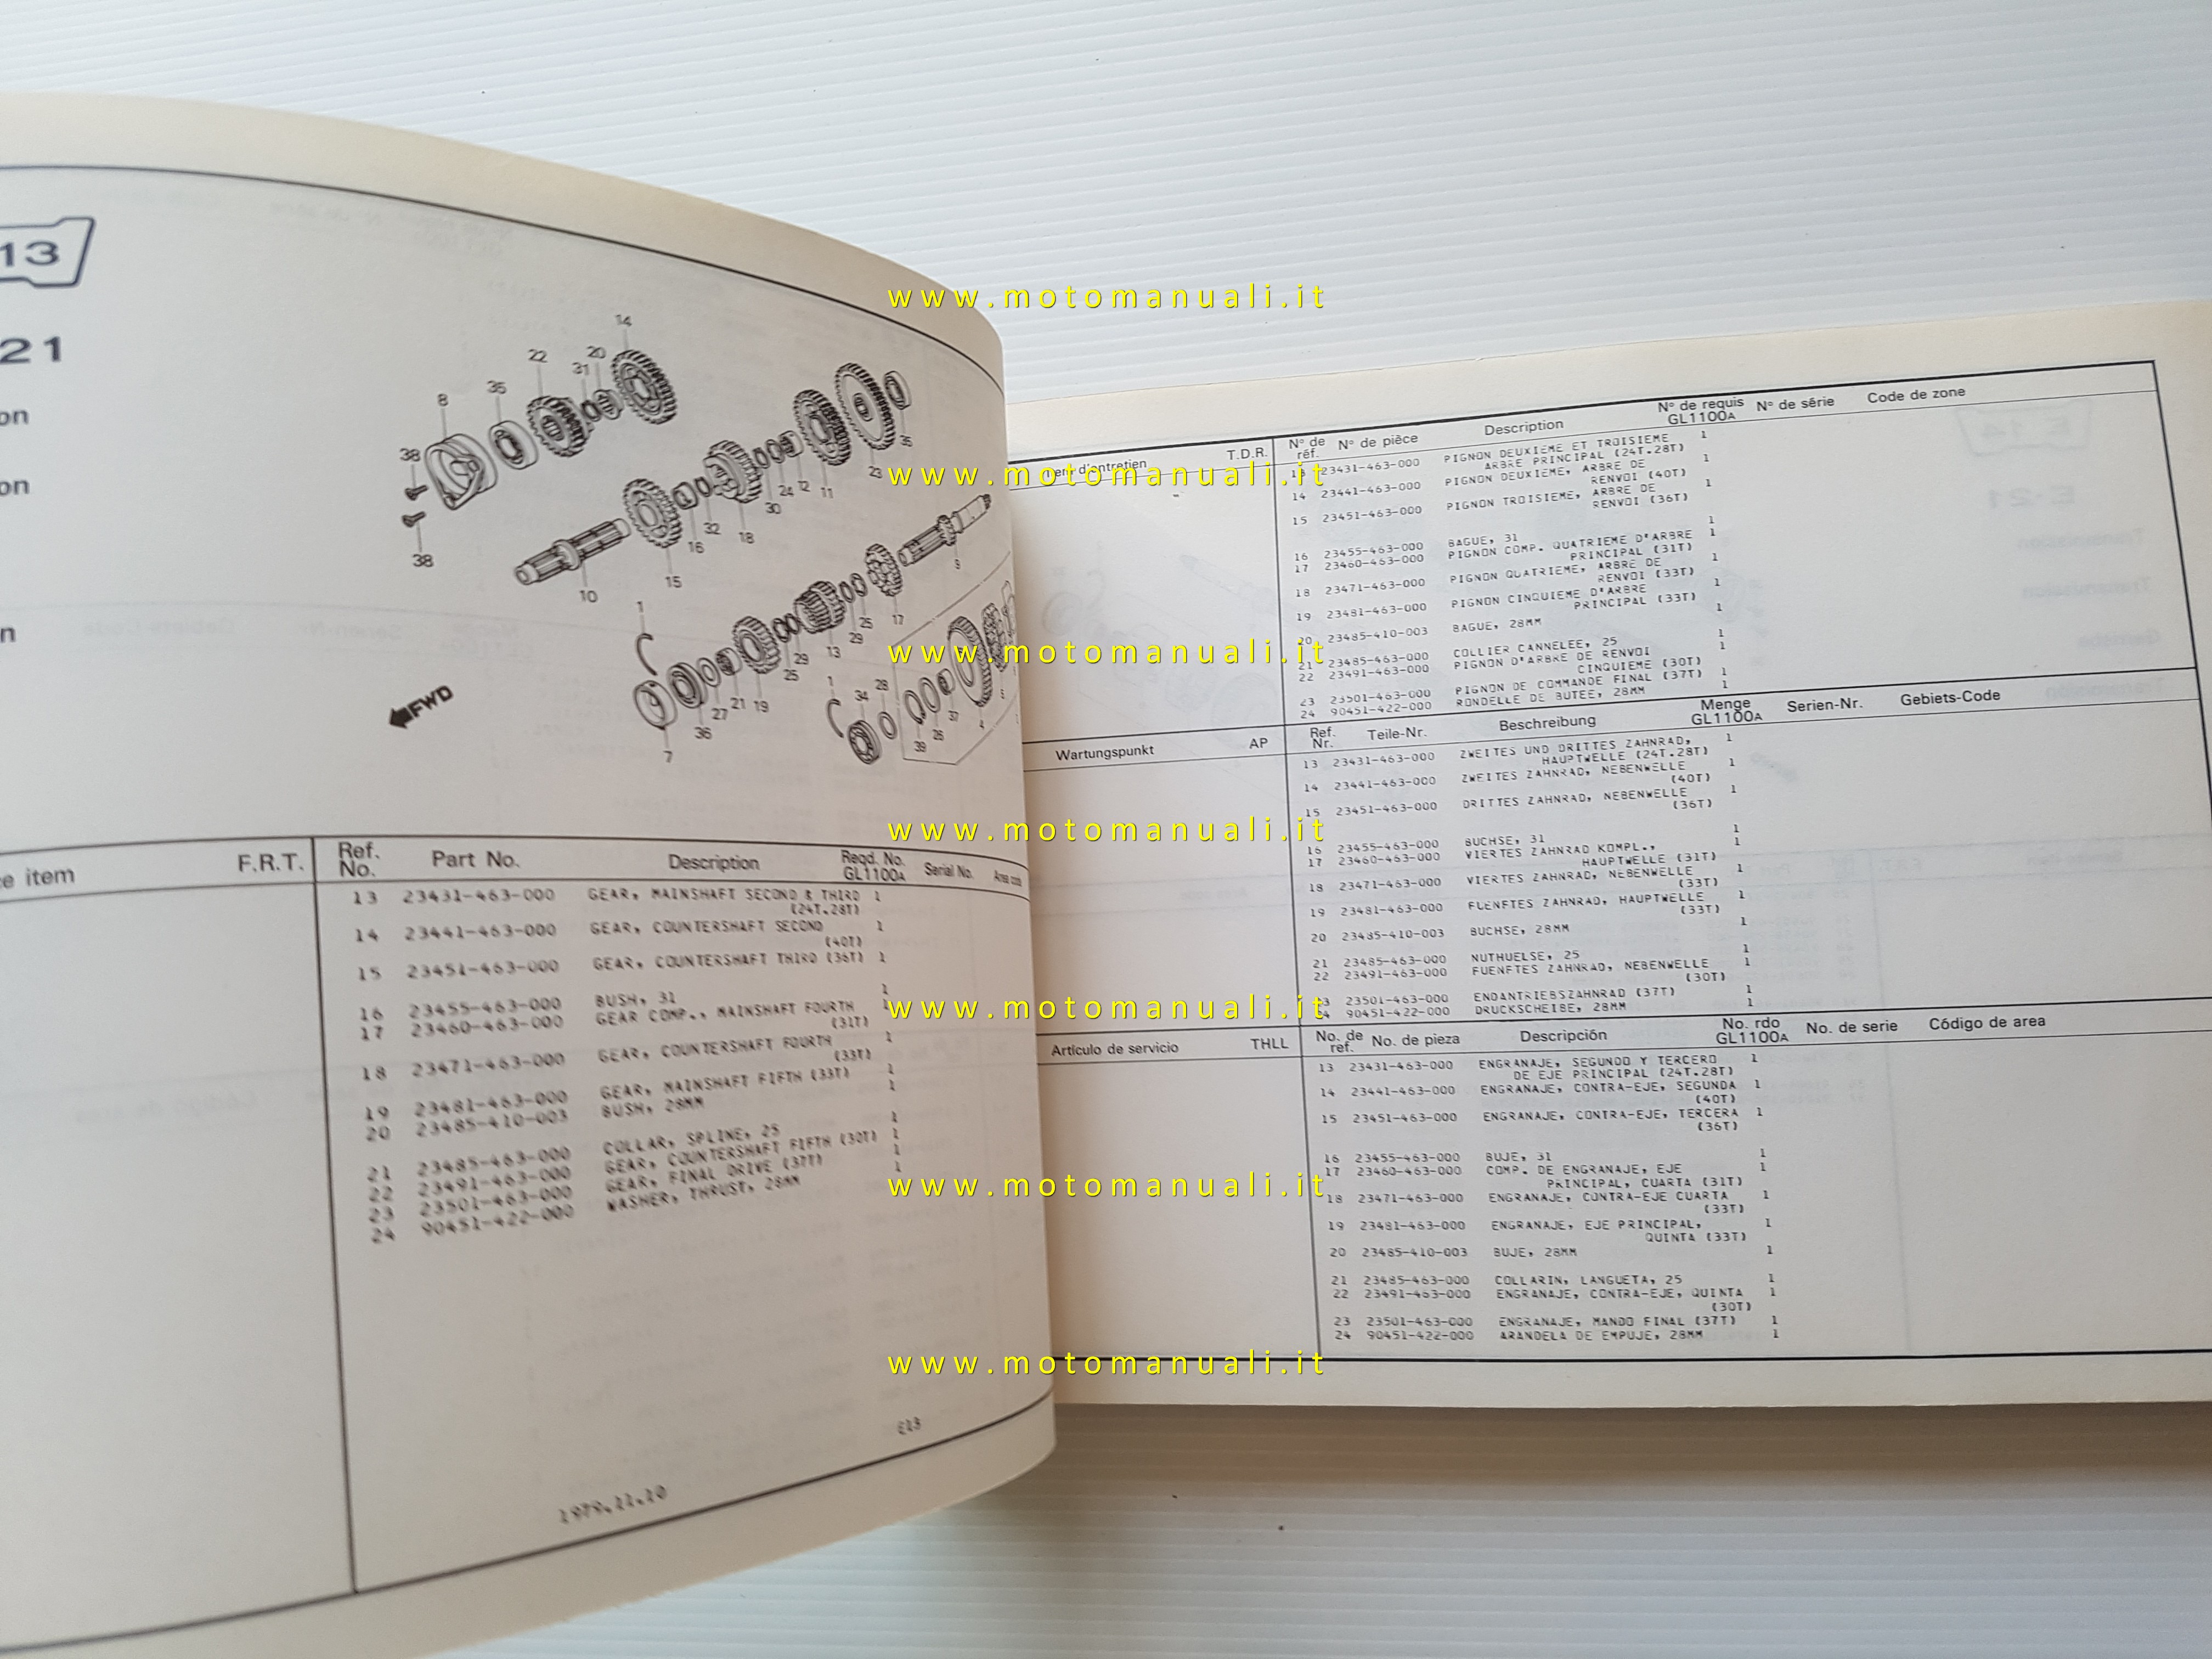 13
21
on
on
n
14
20
22
31
35
8
38
38
35
23
11
12
24
30
18
32
16
15
10
9
17
25
29
13
29
25
19
21
27
36
7
1
1
34
28
39
26
37
4
5
FWD
e item F.R.T. Ref. No. Part No. Description Reqd. No. GL1100A Serial No. Area code
13 23431-463-000 GEAR, MAINSHAFT SECOND & THIRD 1
(24T.28T)
14 23441-463-000 GEAR, COUNTERSHAFT SECOND 1
(40T)
15 23451-463-000 GEAR, COUNTERSHAFT THIRD (36T) 1
16 23455-463-000 BUSH, 31 1
17 23460-463-000 GEAR COMP., MAINSHAFT FOURTH 1
(31T)
18 23471-463-000 GEAR, COUNTERSHAFT FOURTH 1
(33T)
19 23481-463-000 GEAR, MAINSHAFT FIFTH (33T) 1
20 23485-410-003 BUSH, 28MM 1
21 23485-463-000 COLLAR, SPLINE, 25 1
22 23491-463-000 GEAR, COUNTERSHAFT FIFTH (30T) 1
23 23501-463-000 GEAR, FINAL DRIVE (37T) 1
24 90451-422-000 WASHER, THRUST, 28MM 1
E13
1979.11.10
d'entretien T.D.R. N° de réf. N° de pièce Description N° de requis GL1100A N° de série Code de zone
13 23431-463-000 PIGNON DEUXIEME ET TROISIEME 1
ARBRE PRINCIPAL (24T.28T)
14 23441-463-000 PIGNON DEUXIEME, ARBRE DE 1
RENVOI (40T)
15 23451-463-000 PIGNON TROISIEME, ARBRE DE 1
RENVOI (36T)
16 23455-463-000 BAGUE, 31 1
17 23460-463-000 PIGNON COMP. QUATRIEME D'ARBRE 1
PRINCIPAL (31T)
18 23471-463-000 PIGNON QUATRIEME, ARBRE DE 1
RENVOI (33T)
19 23481-463-000 PIGNON CINQUIEME D'ARBRE 1
PRINCIPAL (33T)
20 23485-410-003 BAGUE, 28MM 1
21 23485-463-000 COLLIER CANNELEE, 25 1
22 23491-463-000 PIGNON D'ARBRE DE RENVOI 1
CINQUIEME (30T)
23 23501-463-000 PIGNON DE COMMANDE FINAL (37T) 1
24 90451-422-000 RONDELLE DE BUTEE, 28MM 1
Wartungspunkt AP Ref. Nr. Teile-Nr. Beschreibung Menge GL1100A Serien-Nr. Gebiets-Code
13 23431-463-000 ZWEITES UND DRITTES ZAHNRAD, 1
HAUPTWELLE (24T.28T)
14 23441-463-000 ZWEITES ZAHNRAD, NEBENWELLE 1
(40T)
15 23451-463-000 DRITTES ZAHNRAD, NEBENWELLE 1
(36T)
16 23455-463-000 BUCHSE, 31 1
17 23460-463-000 VIERTES ZAHNRAD KOMPL., 1
HAUPTWELLE (31T)
18 23471-463-000 VIERTES ZAHNRAD, NEBENWELLE 1
(33T)
19 23481-463-000 FUENFTES ZAHNRAD, HAUPTWELLE 1
(33T)
20 23485-410-003 BUCHSE, 28MM 1
21 23485-463-000 NUTHUELSE, 25 1
22 23491-463-000 FUENFTES ZAHNRAD, NEBENWELLE 1
(30T)
23 23501-463-000 ENDANTRIEBSZAHNRAD (37T) 1
24 90451-422-000 DRUCKSCHEIBE, 28MM 1
Artículo de servicio THLL No. de ref. No. de pieza Descripción No. rdo GL1100A No. de serie Código de area
13 23431-463-000 ENGRANAJE, SEGUNDO Y TERCERO 1
DE EJE PRINCIPAL (24T.28T)
14 23441-463-000 ENGRANAJE, CONTRA-EJE, SEGUNDA 1
(40T)
15 23451-463-000 ENGRANAJE, CONTRA-EJE, TERCERA 1
(36T)
16 23455-463-000 BUJE, 31 1
17 23460-463-000 COMP. DE ENGRANAJE, EJE 1
PRINCIPAL, CUARTA (31T)
18 23471-463-000 ENGRANAJE, CONTRA-EJE CUARTA 1
(33T)
19 23481-463-000 ENGRANAJE, EJE PRINCIPAL, 1
QUINTA (33T)
20 23485-410-003 BUJE, 28MM 1
21 23485-463-000 COLLARIN, LANGUETA, 25 1
22 23491-463-000 ENGRANAJE, CONTRA-EJE, QUINTA 1
(30T)
23 23501-463-000 ENGRANAJE, MANDO FINAL (37T) 1
24 90451-422-000 ARANDELA DE EMPUJE, 28MM 1
www.motomanuali.it
www.motomanuali.it
www.motomanuali.it
www.motomanuali.it
www.motomanuali.it
www.motomanuali.it
www.motomanuali.it